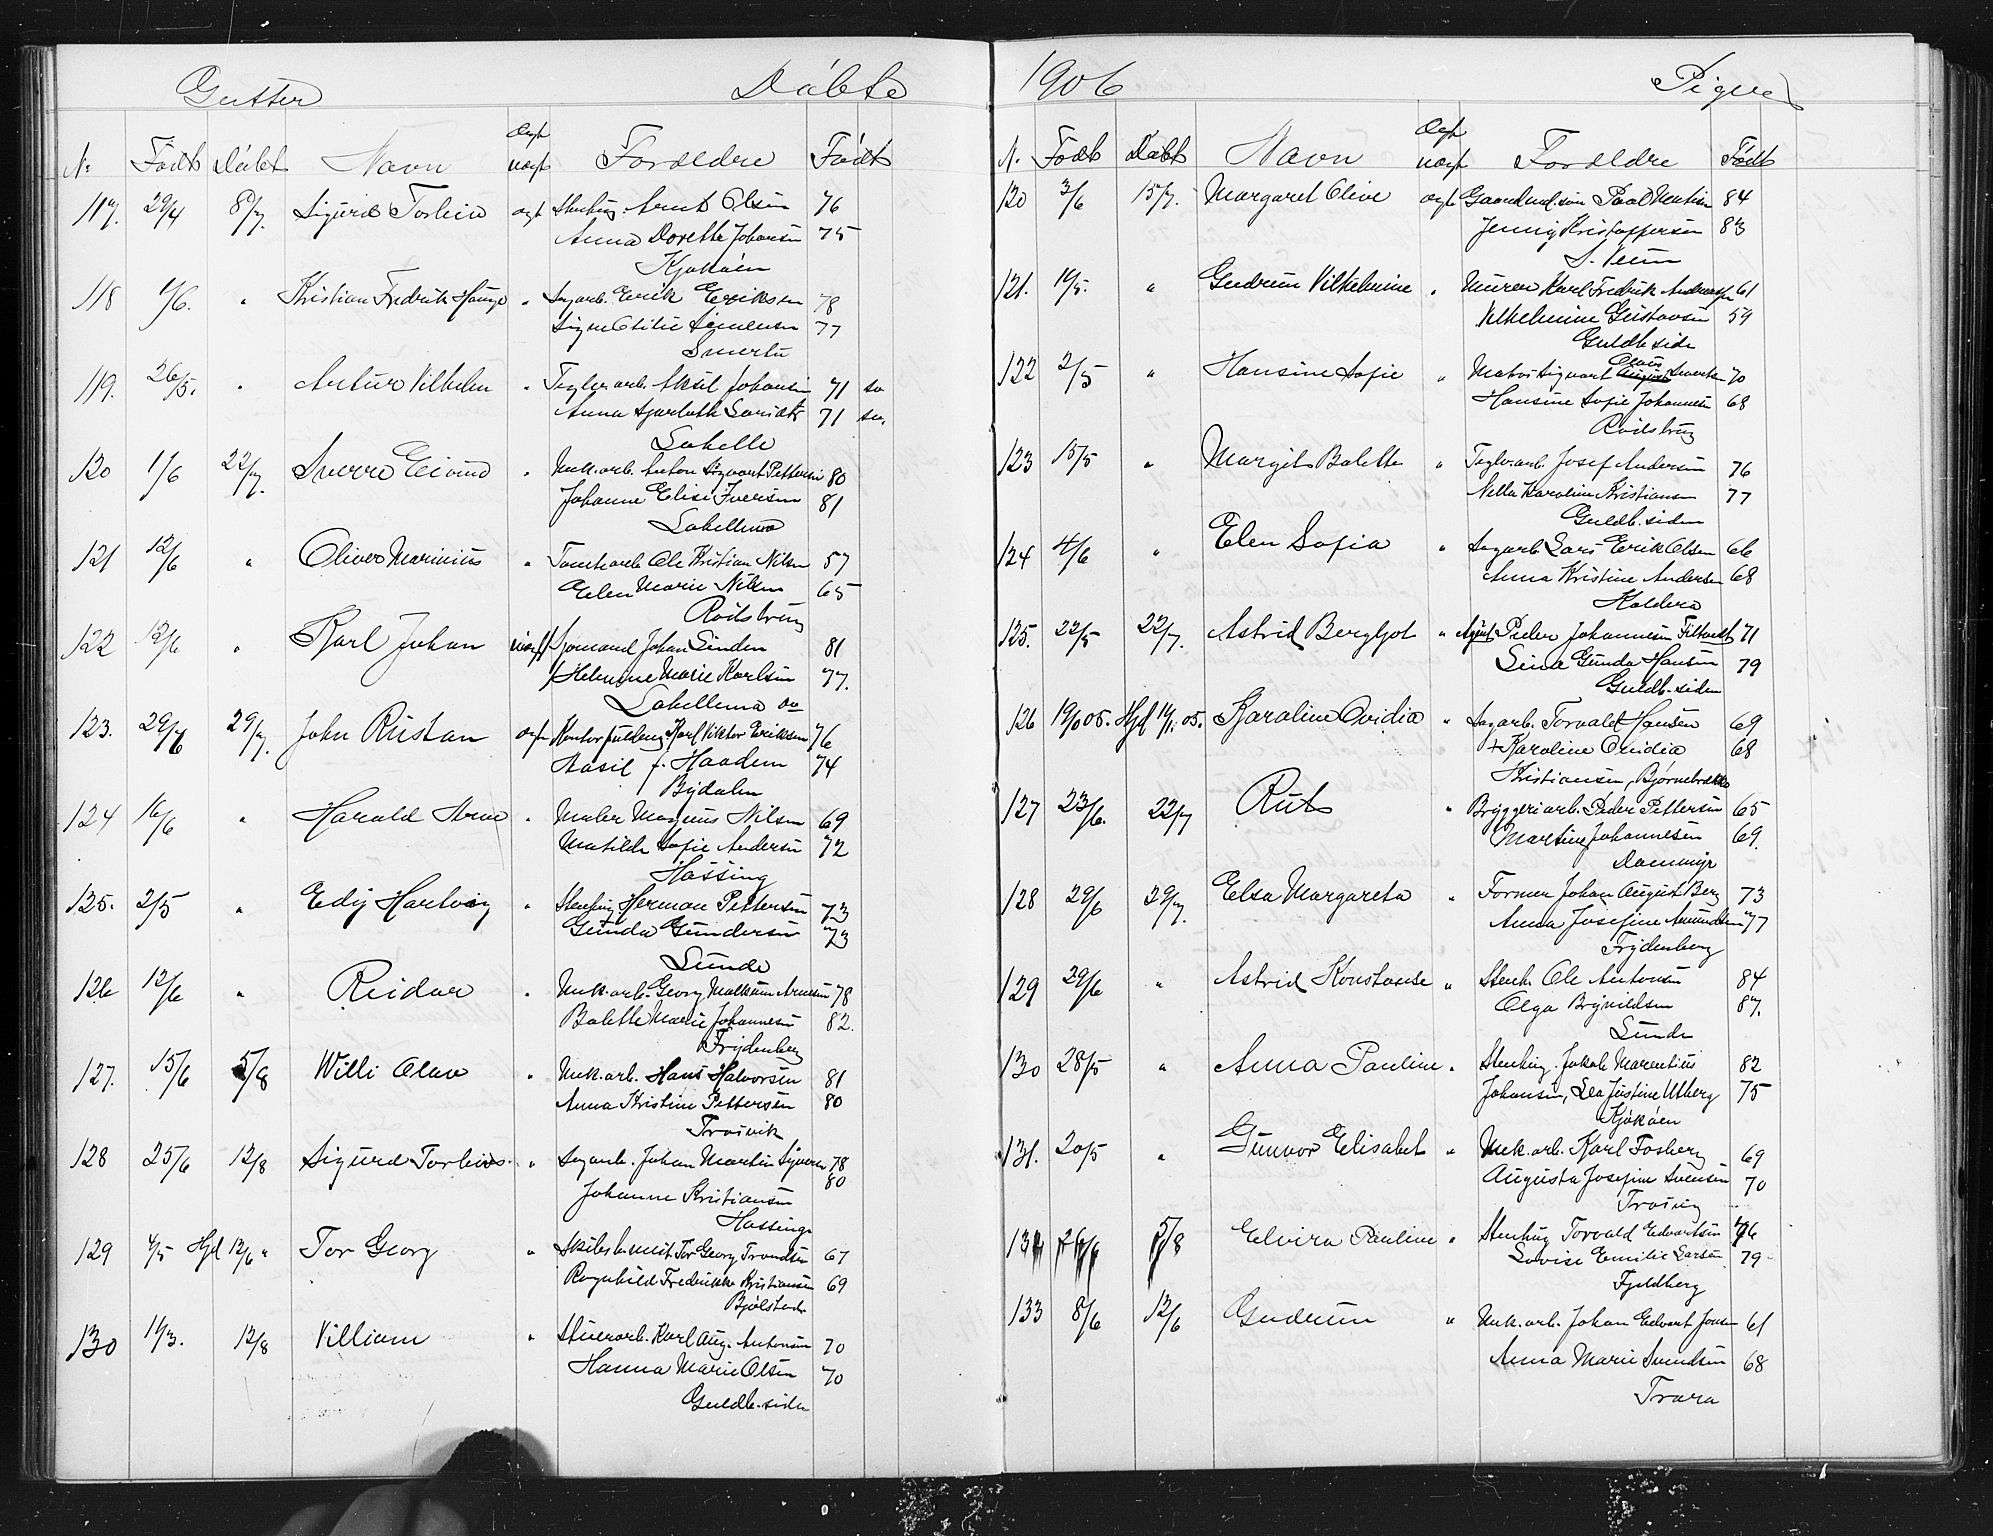 Gutter Döbte
No Födt Döbt Navn Ægt uægt Forældre Födt
117. 29/4 8/7. Sigurd Torleiv ægt Stenhug. Arnt Olsen 76
Anna Dorethe Johansen 75
Kjøkøen
118 1/6. " Kristian Fredrik Hauge " Sagarb. Erik Eriksen 78
Signe Otilie Simensen 77
Smertu
119. 26/5. " Artur Vilhelm " Teglv.arb. Aksel Johansen 71 sv
Anna 71 sv.
Labelle
120 1/6 22/7. Sverre Eivind " Mek.arb. Anton Sigvart Pettersen 80
Johanne Elise Iversen 81
Labellemo
121 12/6 " Oliver Marinius " Tomtearb. Ole Kristian Nilsen 57
Elen Marie Nilsen 65
Rödsbrug
122 12/6 " Karl Johan uægt Sjømand Johan Linden 81
Helmine Marie Karlsen 77.
Labellemo
123. 29/6 29/7. John Ristan ægt Kontorfuldmg. Karl Viktor Eriksen 76
Basil f. Haadem 74
Bydalen
124 16/6 " Harald Arne " Maler Magnus Nilsen 69
Matilde Sofie Andersen 72
Hassing
125. 2/5 " Edy Hartvig " Stenhug. Herman Pettersen 73
Gunda Gundersen 73
Lunde
126 12/6 " Reidar " Mek.arb. Georg Arnesen 78
Bolette Marie Johannesen 82.
Frydenberg
127. 15/6 5/8 Willi Olav " Mek.arb. Hans Halvorsen 81
Anna Kristine Pettersen 80
Trosvik
128 25/6 12/8 Sigurd Torleiv " Sagarb. Johan Martin Syvers 78
Johanne Kristiansen 80
Hassinge
129 4/5 Hjd 12/6 " Tor Georg " Skibstermst. Tor Georg Trondsen 67
Ragnhild Fredrikke Kristiansen 69
Bjølstad
130 14/3. 12/8 Villiam " Stuerarb. Karl Aug. Antonsen 70
Hanna Marie Olsen 70
Guldb.siden
1906 Piger
N. Födt Döbt Navn Ægt uægt Forældre Födt
120 3/6 15/7. Margaret Olive ægt Gaardmd.søn Paal Mentsen 84
Jenny Kristoffersen 83
S. Veum
121. 14/5. " Gudrun Vilhelmine " Murer Karl Fredrik Andreassen 61
Vilhelmine Gustavsen 59
Guldb.side
122 2/5 " Hansine Sofie " Matros Sigvart Olaus Smerten 70
Hansine Sofie Johannesen 68
Rödsbrug
123 15/5 " Margit Bolette " Teglv.arb. Josef Andersen 76
Nella Karoline Kristiansen 77
Guldb.siden
124 4/6 " Elen Sofia " Sagarb. Lars Erik Olsen 66
Anna Kristine Andersen 68
Holdera
125. 22/5 22/7. Astrid Bergljot " Agent Peder Johannesen 71
Lina Gunda Hansen 79
Guldb.siden
126 19/10 05. Hjd 14/1. 05. Karoline Ovidia " Sagarb. Torvald Hansen 69
+ Karoline Ovidia 68
Kristiansen, Bjørnebrække
127 23/6. 22/7 Rut " Bryggeriarb. Peder Pettersen 65
Martine Johannesen 69.
Dammyr
128 29/6 29/7. Elsa Margareta " Former Johan August Berg 73
Anna Josefine Amundsen 77
Frydenberg
129 29/6 " Astrid Konstanse " Stenh. Ole Antonsen 84
Olga Brynildsen 87.
Lunde
130 28/5 " Anna Pauline " Stenhug. Jakob Marentius 82
Johansen, Lea Justine Utberg 75
Kjøkøen
131. 20/5 " Gunvor Elisabet " Mek.arb. Karl Fosberg 69
Augusta Josefine Svensen 70
Trosvig
132 26/6 5/8 Elvira Pauline " Stenhug Torvald Edvartsen 76
Lovise Emilie Larsen 79
Fjeldberg
133 8/6 12/6 Gudrun " Mek.arb. Johan Edvart Jonsen 61
Anna Marie Svendsen 68
Trara